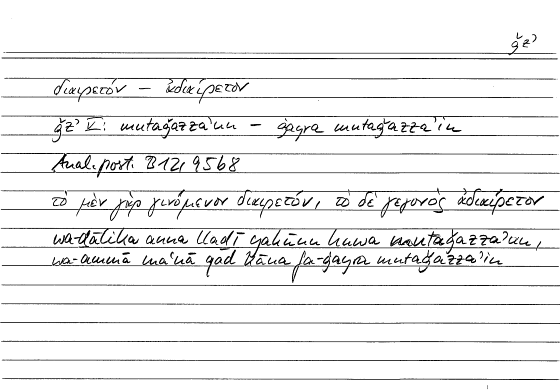 ǧzʾ
διαιρετόν – ἀδιαίρετον
ǧzʾ V: mutaǧazzaʾun – ġayra mutaǧazzaʾin
Anal. post. B 12, 95b8
τὸ μὲν γὰρ γινόμενον διαιρετόν, τὸ δὲ γεγονὸς ἀδιαίρετον
wa-ḏālika anna llaḏī yakūnu huwa mutaǧazzaʾun,
wa-ammā maʿnā qad kāna fa-ġayra mutaǧazzaʾin